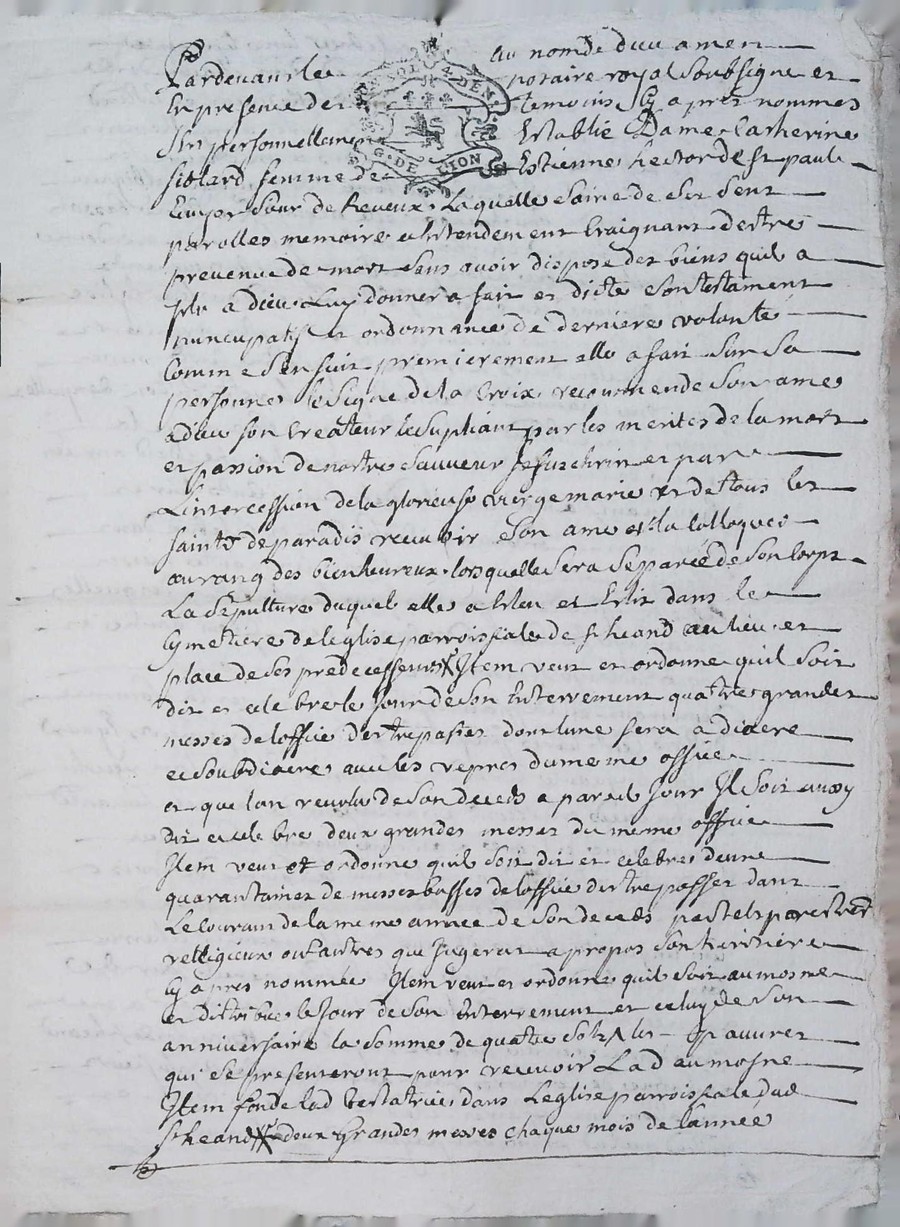 Au nom de dieu amen
Pardevant le notaire royal Soubsigne et
En presence des temoins Cy apres nommes
S'est personnellement Establie Dame Catherine
fiolard femme de Estienne hector de St paul
Laquelle Saine de Ses Sens
parolles memoire et Entendement Craignant destre
prevenue de mort Sans avoir dispose des biens quil a
plu a dieu Luy donner a fait et dicté Son testament
nuncupatif et ordonnance de derniere volonté
Comme Sensuit premierement elle a fait Sur Sa
personne le Signe de la Croix recommende Son ame
a dieu Son Createur le Supliant par les merites de la mort
et passion de nortre Sauveur Jesus chrit et par
Lintercession de la glorieuse vierge marie et de tous les
saints de paradis recevoir Son ame et la Colloquer
au rang des bienheureux lorsquelle Sera Separée de Son Corps
La Sepulture duquel elle a Eleu et Elit dans le
Cymetiere de leglise parroissiale de St heand au lieu et
place de Ses predecesseurs Item veut et ordonne quil Soit
dit et celebre le Jour de Son Enterrement quattre grandes
messes de loffice des trepasses dont lune sera a diacre
et Soubdiacre avec les vepres du meme office
et que lan revolu de Son deceds a pareil Jour Il Soit aussy
dit et celebre deux grandes messes du meme office
Item veut et ordonne quil Soit dit et celebre deux
quarantaines de messes basses de loffice des trepasses dans
Le Courant de la meme année de Son deceds par tels prestres
relligieux ou autres que Jugera a propos Son heritiere
Cy apres nommée Item veut et ordonne quil Soit aumosne
et distribue le Jour de Son Enterrement et celuy de Son
anniversaire la Somme de quatre Sols pauvres
qui Se presenteront pour recevoir Lad aumosne
Item fonde lad testatrice dans Leglise parroissiale dud
St heand deux Grandes messes chaque mois de lannée
G. DE LION